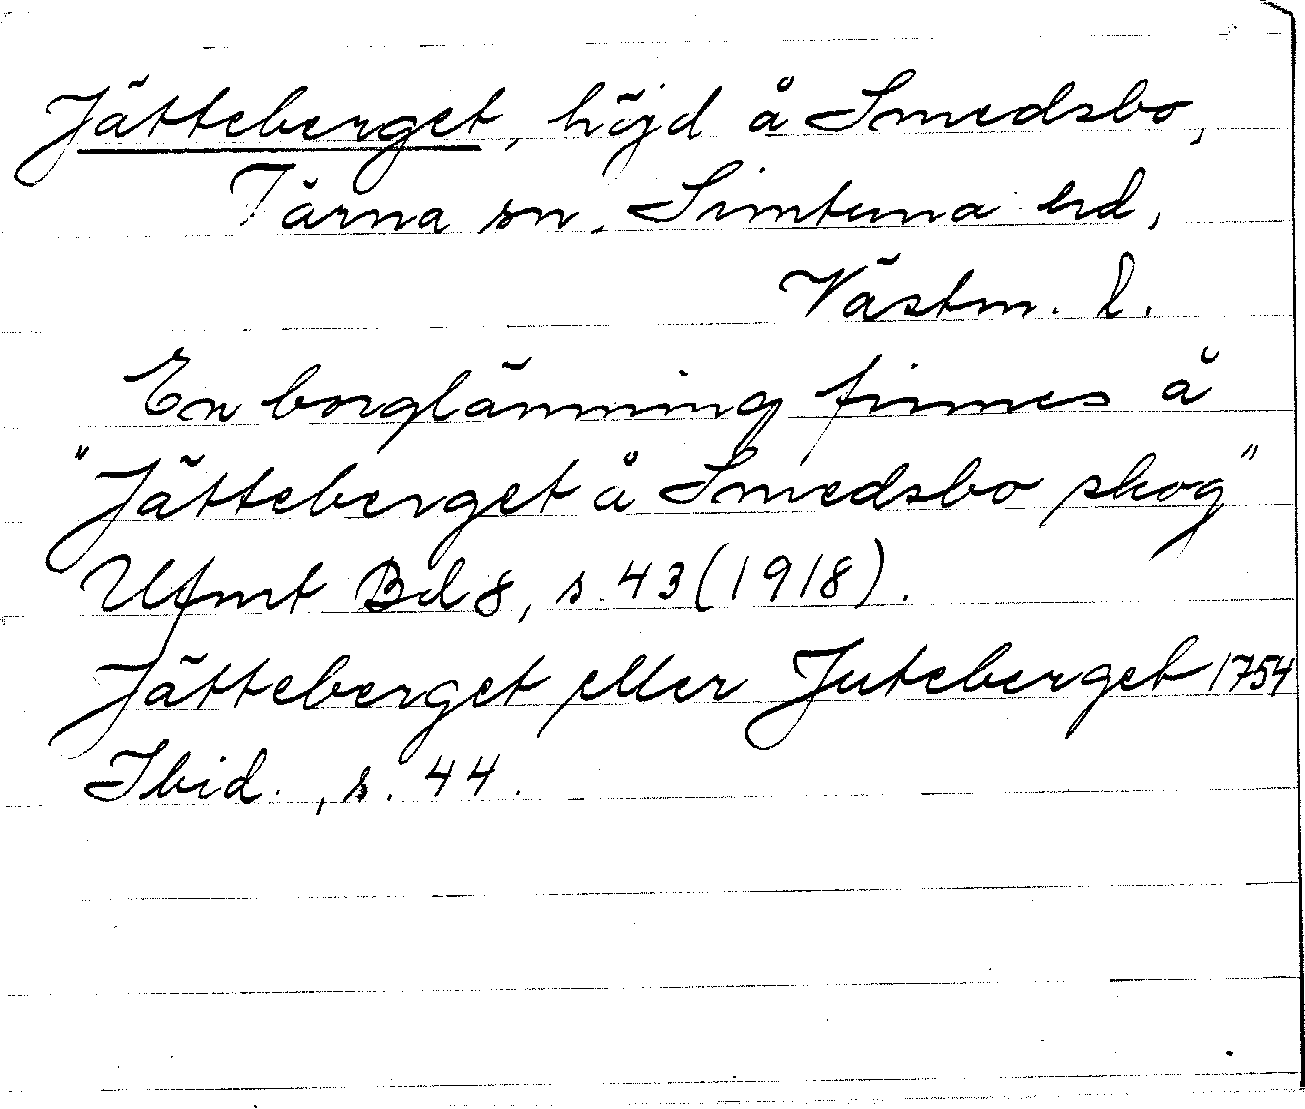 Jätteberget, höjd å Smedsbo,
Tärna sn, Simtuna hd,
Västm. l.
En borglämning finnes å
"Jätteberget å Smedsbo skog"
Ufmt Bd 8, s. 43 (1918).
Jätteberget eller Juteberget 1754
Ibid., s. 44.